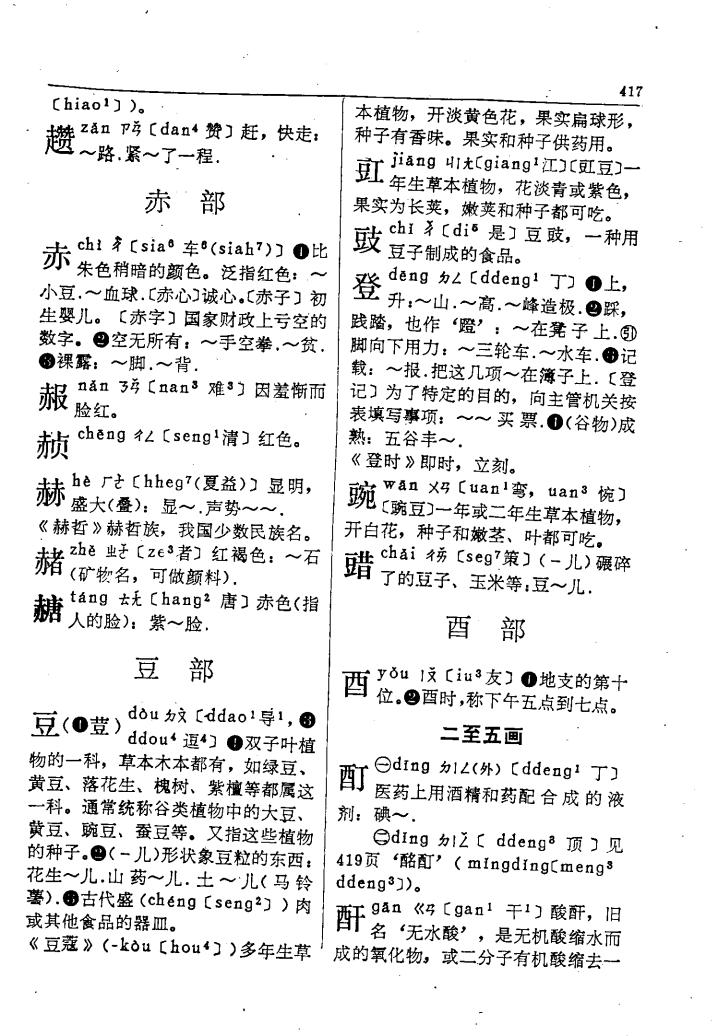 417
〔hiao¹〕)。
趱 zǎn ㄗㄢ〔dan⁴ 赞〕赶，快走：
～路.紧～了一程.
赤 部
赤 chì ㄔ〔sia⁶ 车⁶(siah⁷)〕❶比
朱色稍暗的颜色。泛指红色：～
小豆.～血球.〔赤心〕诚心。〔赤子〕初
生婴儿。〔赤字〕国家财政上亏空的
数字。❷空无所有：～手空拳.～贫.
❸裸露：～脚.～背.
赧 nǎn ㄋㄢ〔nan³ 难³〕因羞惭而
脸红。
赪 chēng ㄔㄥ〔seng¹清〕红色。
赫 hè ㄏㄜ〔hheg⁷(夏益)〕显明，
盛大(叠)：显～.声势～～.
《赫哲》赫哲族，我国少数民族名。
赭 zhě ㄓㄜ〔ze³者〕红褐色：～石
(矿物名，可做颜料).
赯 táng ㄊㄤ〔hang² 唐〕赤色(指
人的脸)：紫～脸.
豆 部
豆(❶荳) dòu ㄉㄡ〔ddao¹导¹，❸
ddou⁴ 逗⁴〕❶双子叶植
物的一科，草本木本都有，如绿豆、
黄豆、落花生、槐树、紫檀等都属这
一科。通常统称谷类植物中的大豆、
黄豆、豌豆、蚕豆等。又指这些植物
的种子。❷(－儿)形状象豆粒的东西：
花生～儿.山药～儿.土～儿(马铃
薯).❸古代盛(chéng〔seng²〕)肉
或其他食品的器皿。
《豆蔻》(-kòu〔hou⁴〕)多年生草
本植物，开淡黄色花，果实扁球形，
种子有香味。果实和种子供药用。
豇 jiāng ㄐㄧㄤ〔giang¹江〕〔豇豆〕一
年生草本植物，花淡青或紫色，
果实为长荚，嫩荚和种子都可吃。
豉 chǐ ㄔ〔di⁶ 是〕豆豉，一种用
豆子制成的食品。
登 dēng ㄉㄥ〔ddeng¹ 丁〕❶上，
升：～山.～高.～峰造极.❷踩，
践踏，也作‘蹬’：～在凳子上.㉛
脚向下用力：～三轮车.～水车.❸记
载：～报.把这几项～在簿子上.〔登
记〕为了特定的目的，向主管机关按
表填写事项：～～买票.❹(谷物)成
熟：五谷丰～.
《登时》即时，立刻。
豌 wān ㄨㄢ〔uan¹弯，uan³ 惋〕
〔豌豆〕一年或二年生草本植物，
开白花，种子和嫩茎、叶都可吃。
䜺 chǎi ㄔㄞ〔seg⁷策〕(－儿)碾碎
了的豆子、玉米等：豆～儿.
酉 部
酉 yǒu ㄧㄡ〔iu³友〕❶地支的第十
位。❷酉时，称下午五点到七点。
二至五画
酊 ㊀dīng ㄉㄧㄥ(外)〔ddeng¹ 丁〕
医药上用酒精和药配合成的液
剂：碘～.
㊁dǐng ㄉㄧㄥ〔ddeng³ 顶〕见
419页‘酩酊’(mǐngdǐng〔meng³
ddeng³〕)。
酐 gān ㄍㄢ〔gan¹ 干¹〕酸酐，旧
名‘无水酸’，是无机酸缩水而
成的氧化物，或二分子有机酸缩去一